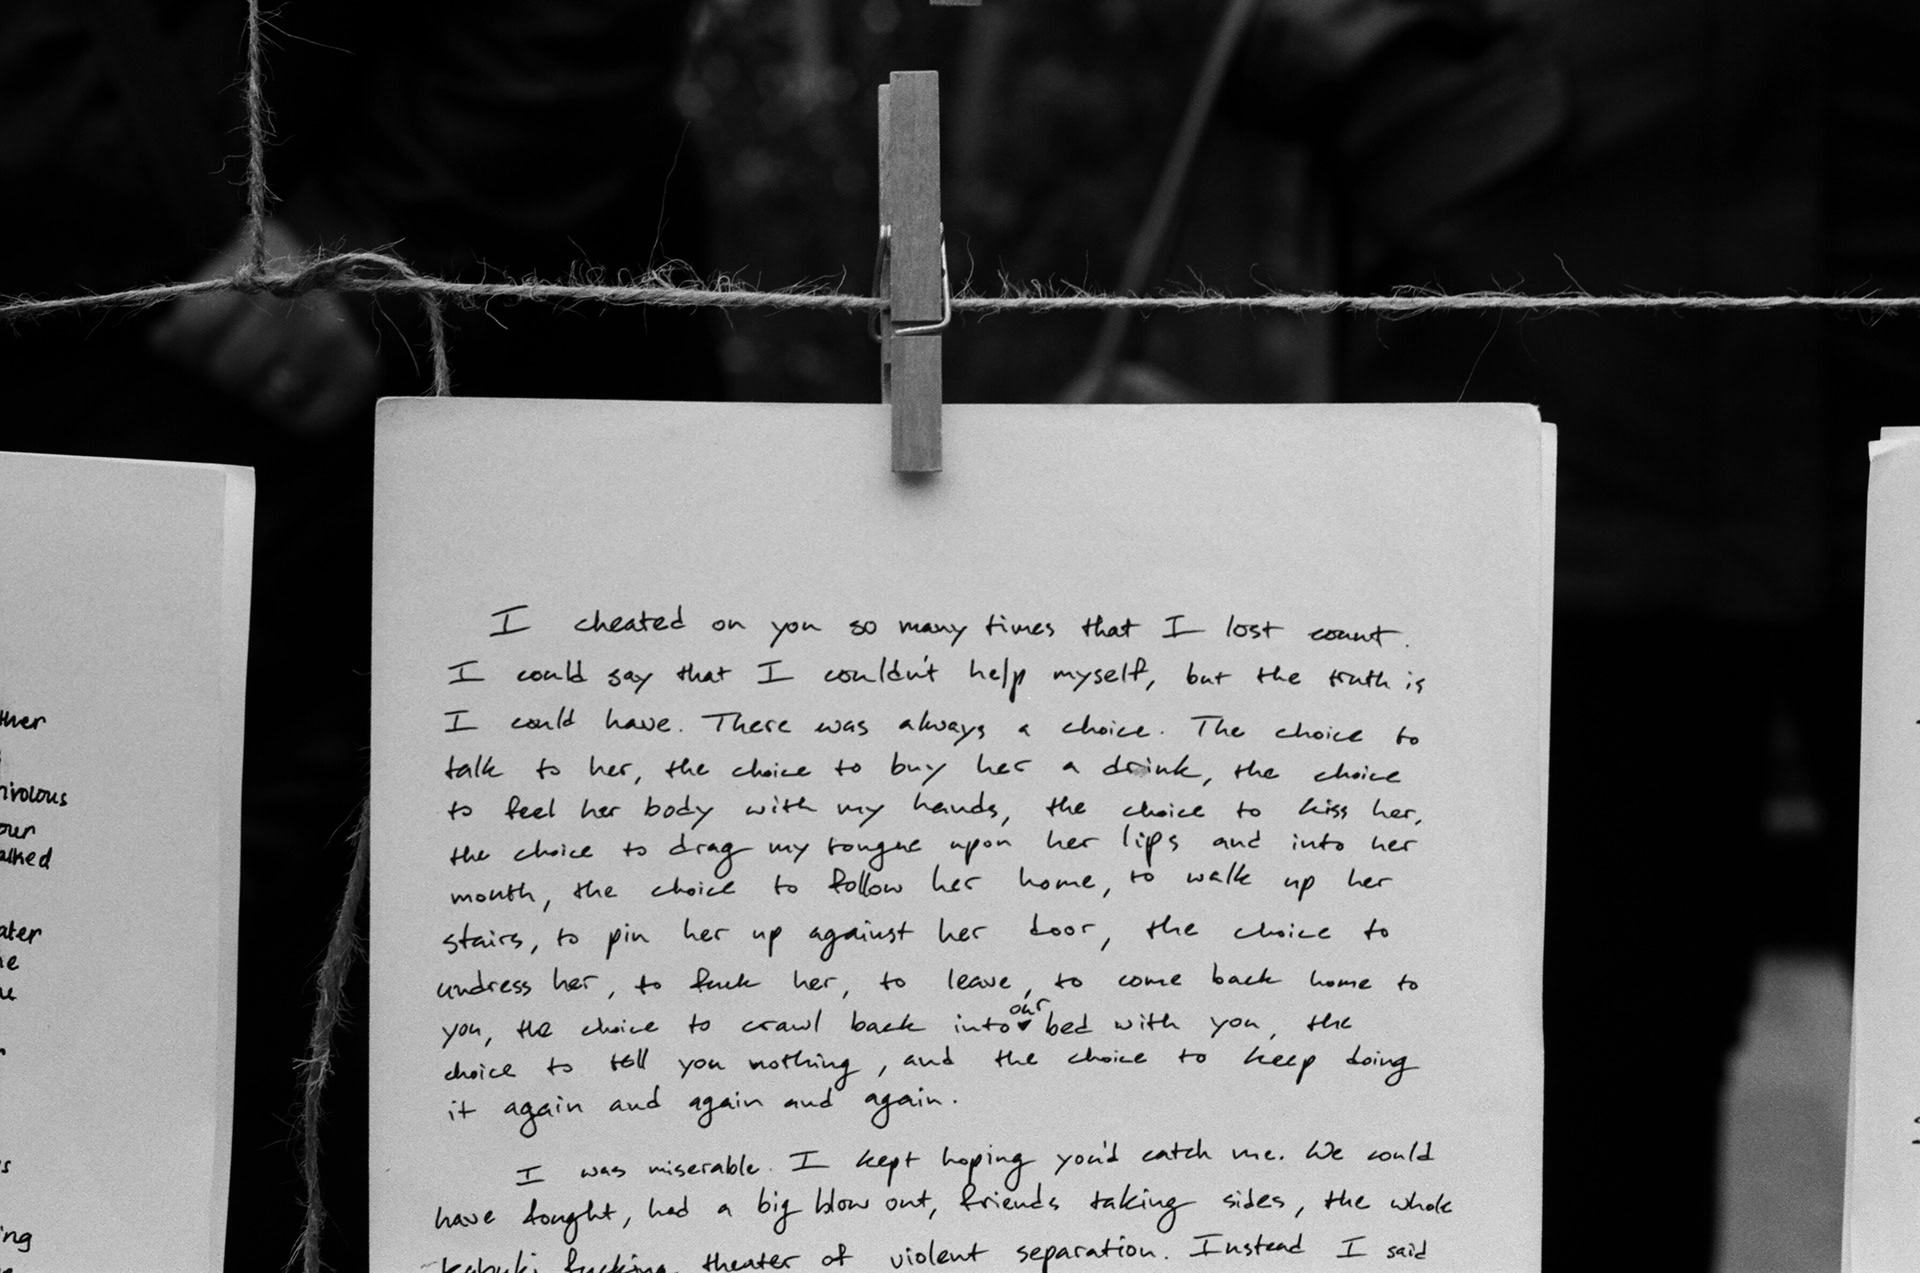 ther
rivolous
our
alked
ater
ing
I cheated on you so many times that I lost count.
I could say that I couldn't help myself, but the truth is
I could have. There was always a choice. The choice to
talk to her, the choice to buy her a drink, the choice
to feel her body with my hands, the choice to kiss her,
the choice to drag my tongue upon her lips and into her
mouth, the choice to follow her home, to walk up her
stairs, to pin her up against her door, the choice to
undress her, to fuck her, to leave, to come back home to
you, the choice to crawl back into our bed with you, the
choice to tell you nothing, and the choice to keep doing
it again and again and again.
I was miserable. I kept hoping you'd catch me. We could
have fought, had a big blow out, friends taking sides, the whole
kabuki fucking theater of violent separation. Instead I said